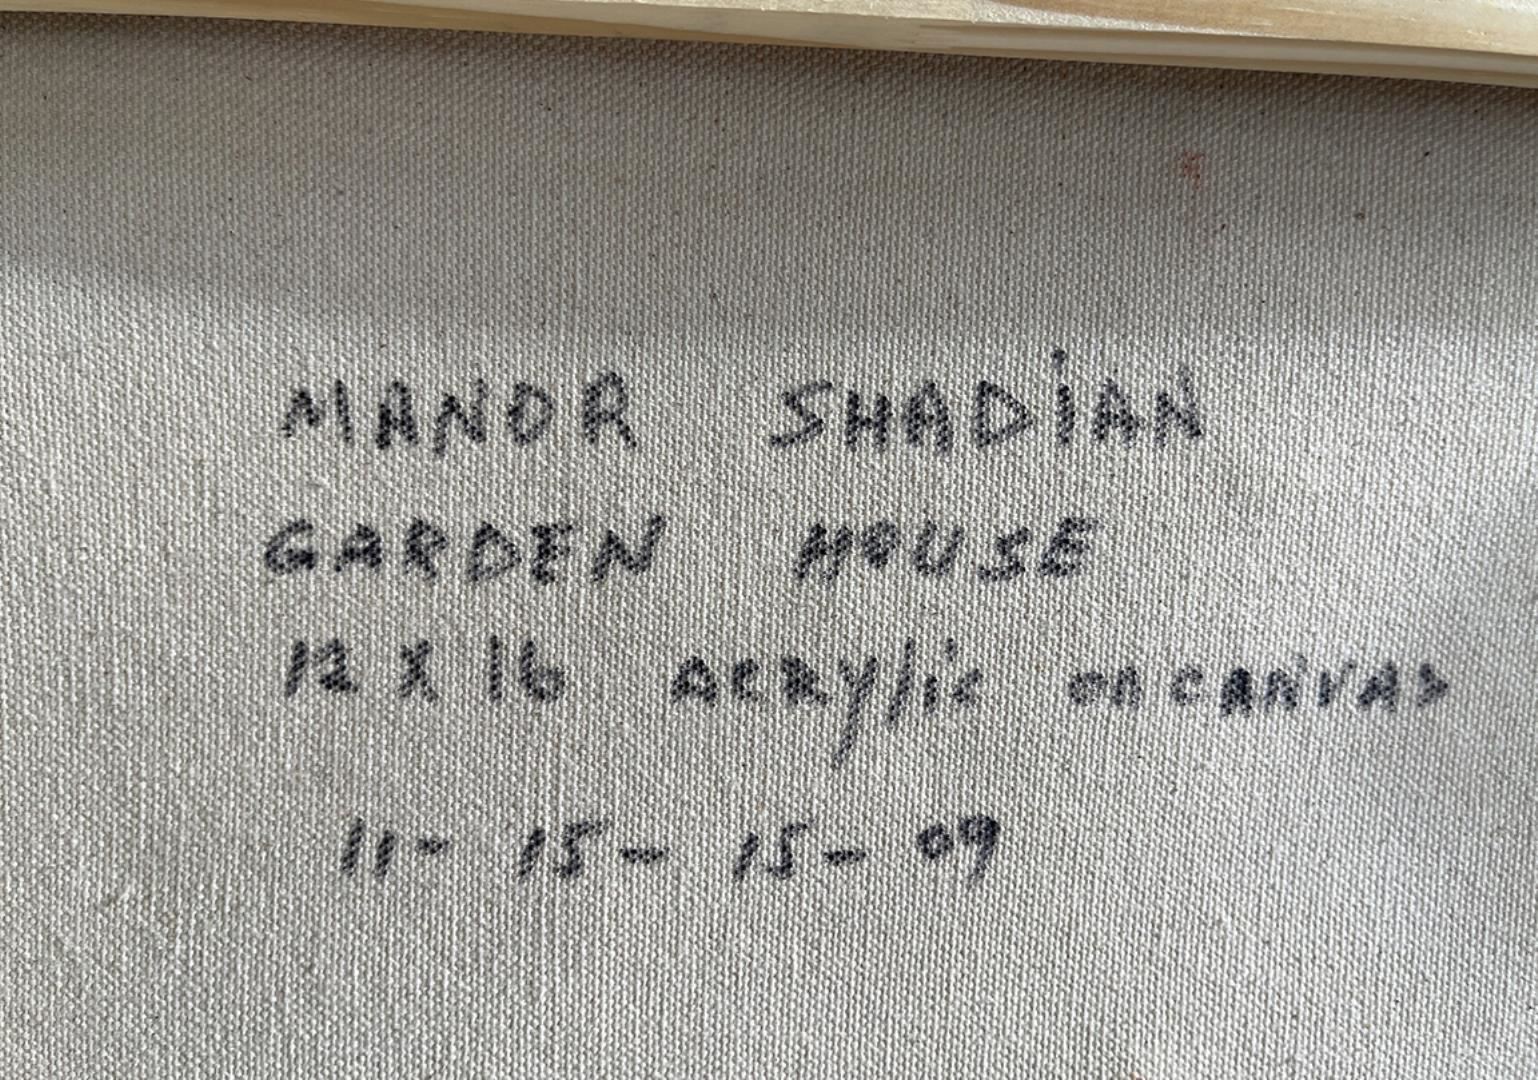 MANOR SHADiAN
GARDEN HOUSE
12 X 16 ACRYlic on CANVAS
11- 15- 15- 09